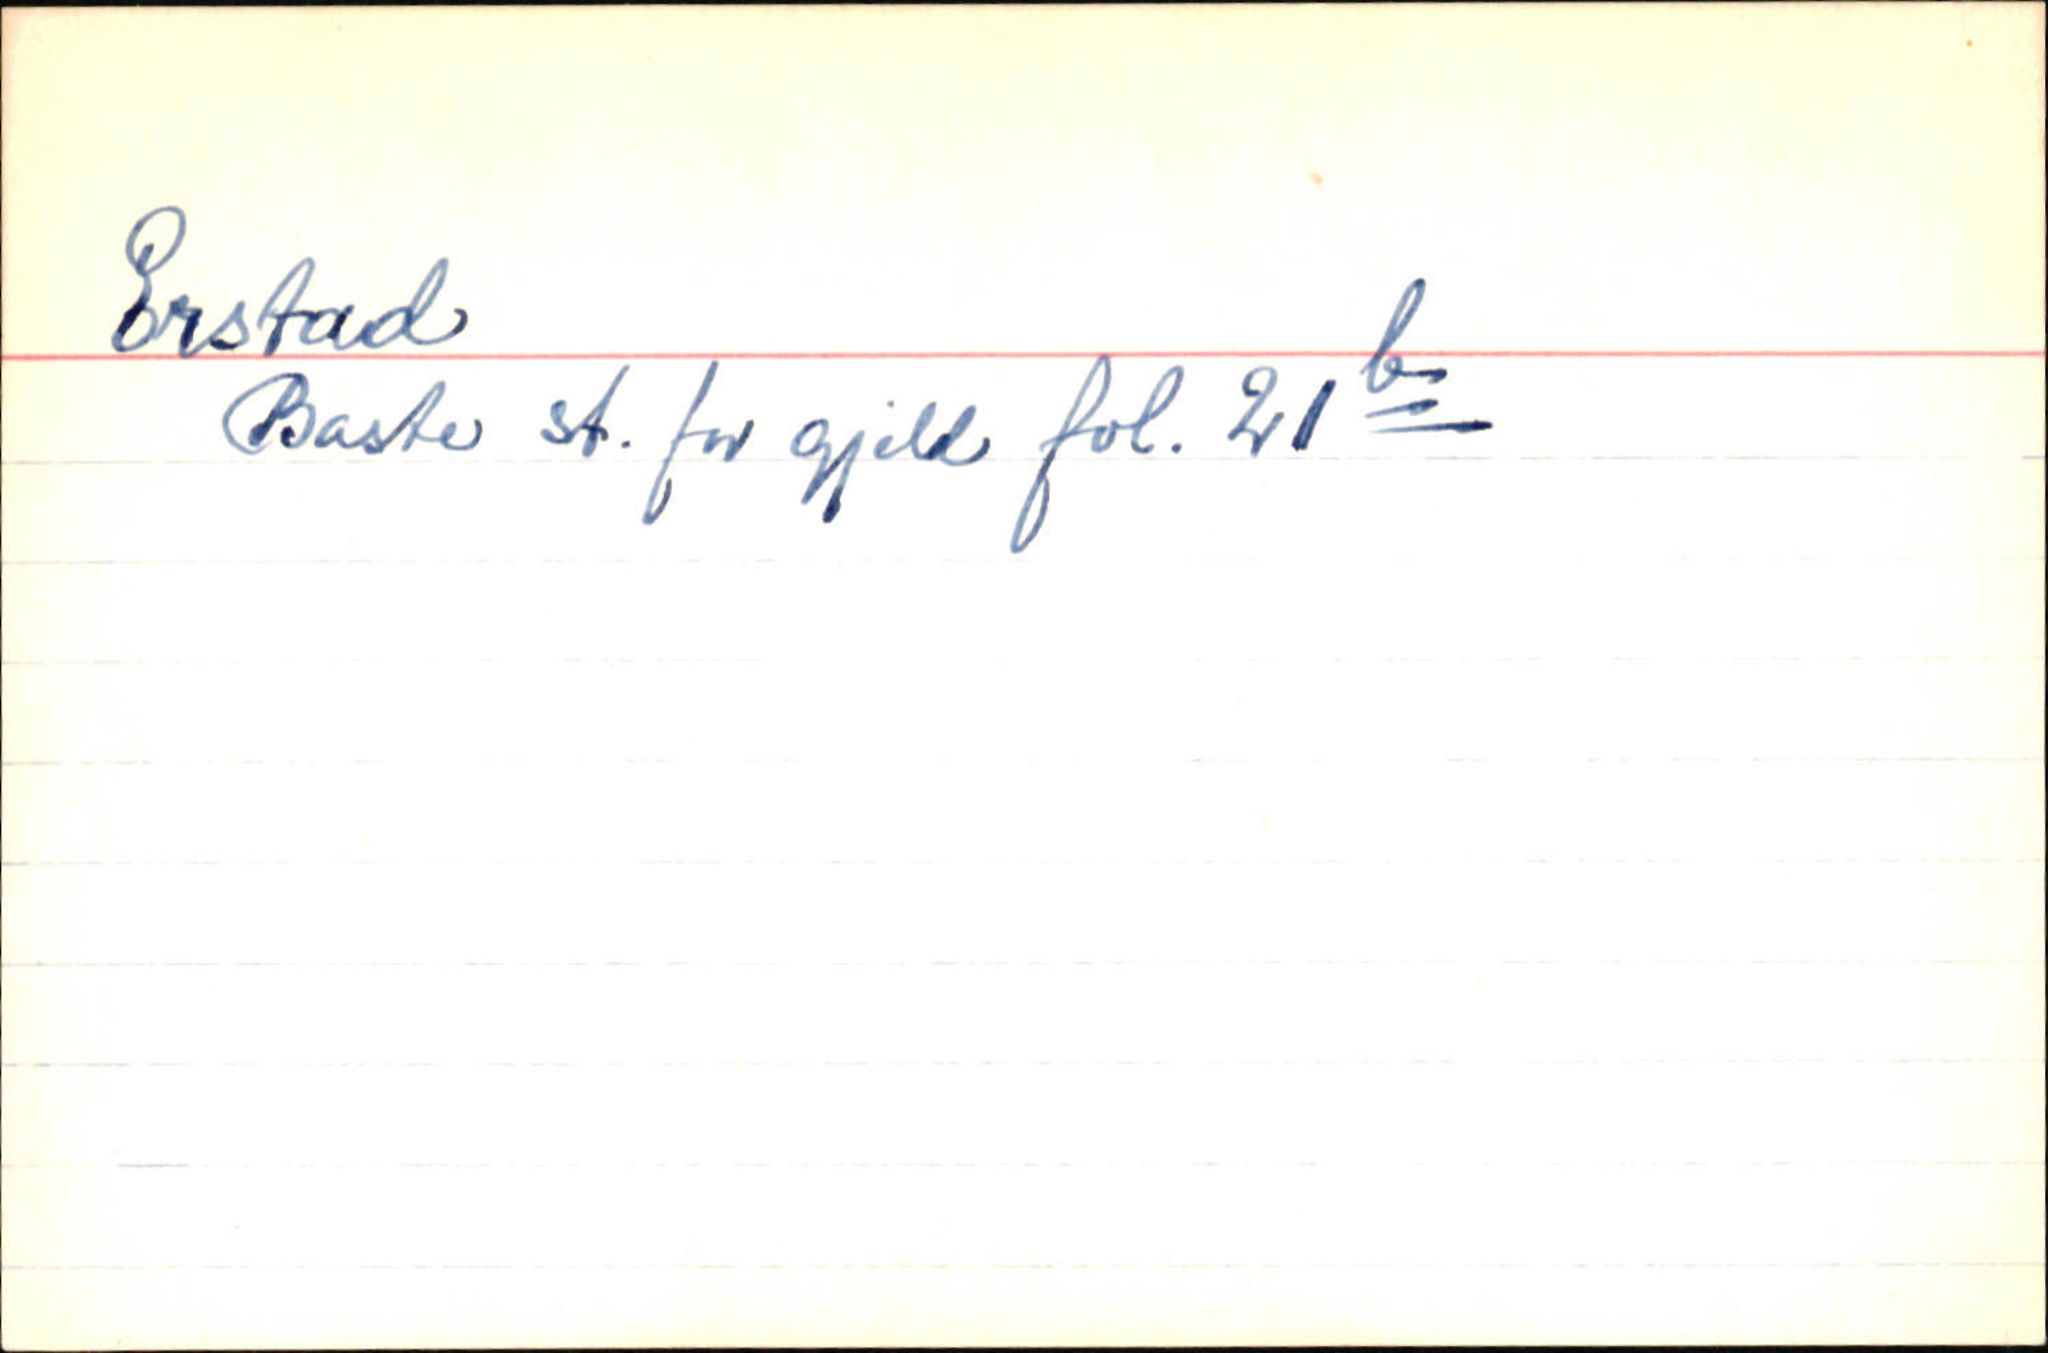 Erstad
Baste st. for gjeld fol. 21 b